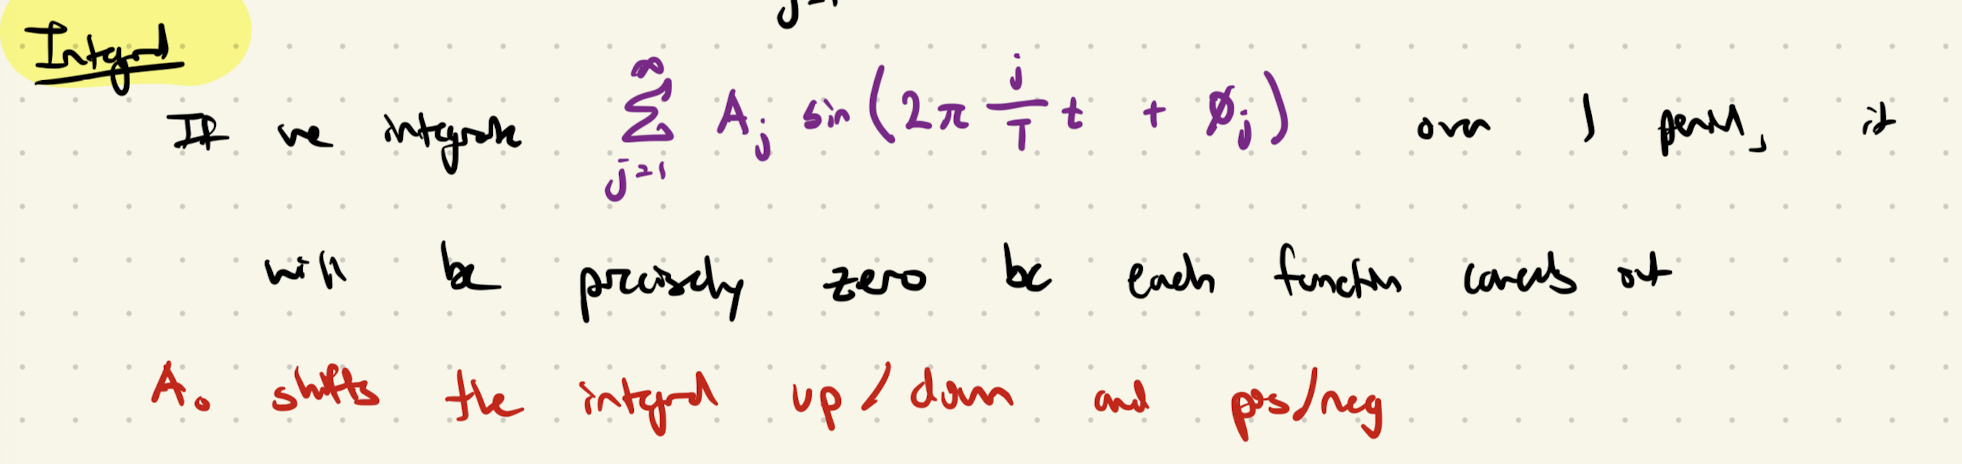 Integral
If we integrate ∑_{j=1}^{∞} A_j sin(2π j/T t + ø_j) over 1 period, it
will be precisely zero bc each function cancels out
A₀ shifts the integral up/down and pos/neg